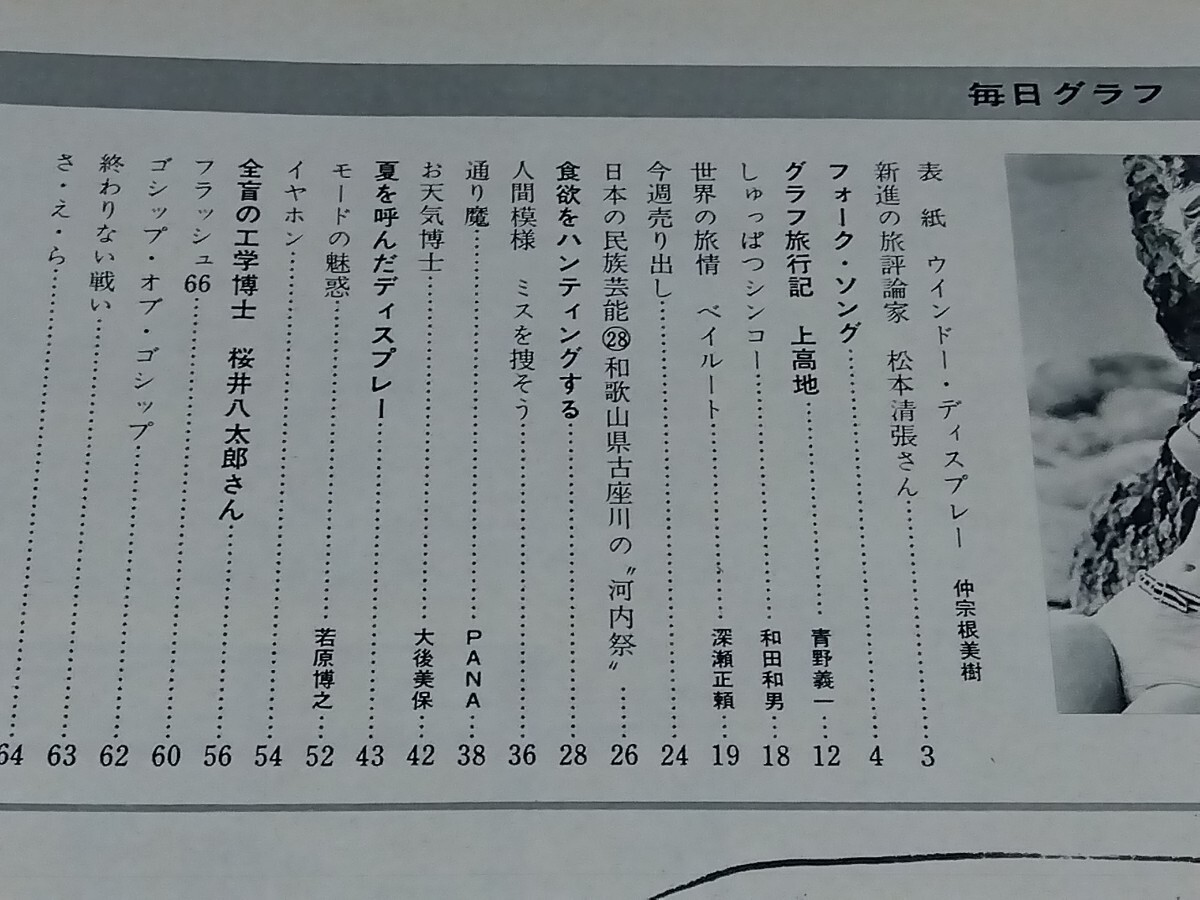 毎日グラフ
表 紙 ウインドー・ディスプレー 仲宗根美樹
新進の旅評論家 松本清張さん……3
フォーク・ソング……4
グラフ旅行記 上高地……青野義一…12
しゅっぱつシンコー……和田和男…18
世界の旅情 ベイルート……深瀬正頼…19
今週売り出し……24
日本の民族芸能㉘和歌山県古座川の〝河内祭〟……26
食欲をハンティングする……28
人間模様 ミスを捜そう……36
通り魔……PANA…38
お天気博士……大後美保…42
夏を呼んだディスプレー……43
モードの魅惑……若原博之…52
イヤホン……54
全盲の工学博士 桜井八太郎さん……56
フラッシュ66……60
ゴシップ・オブ・ゴシップ……62
終わりない戦い……63
さ・え・ら……64